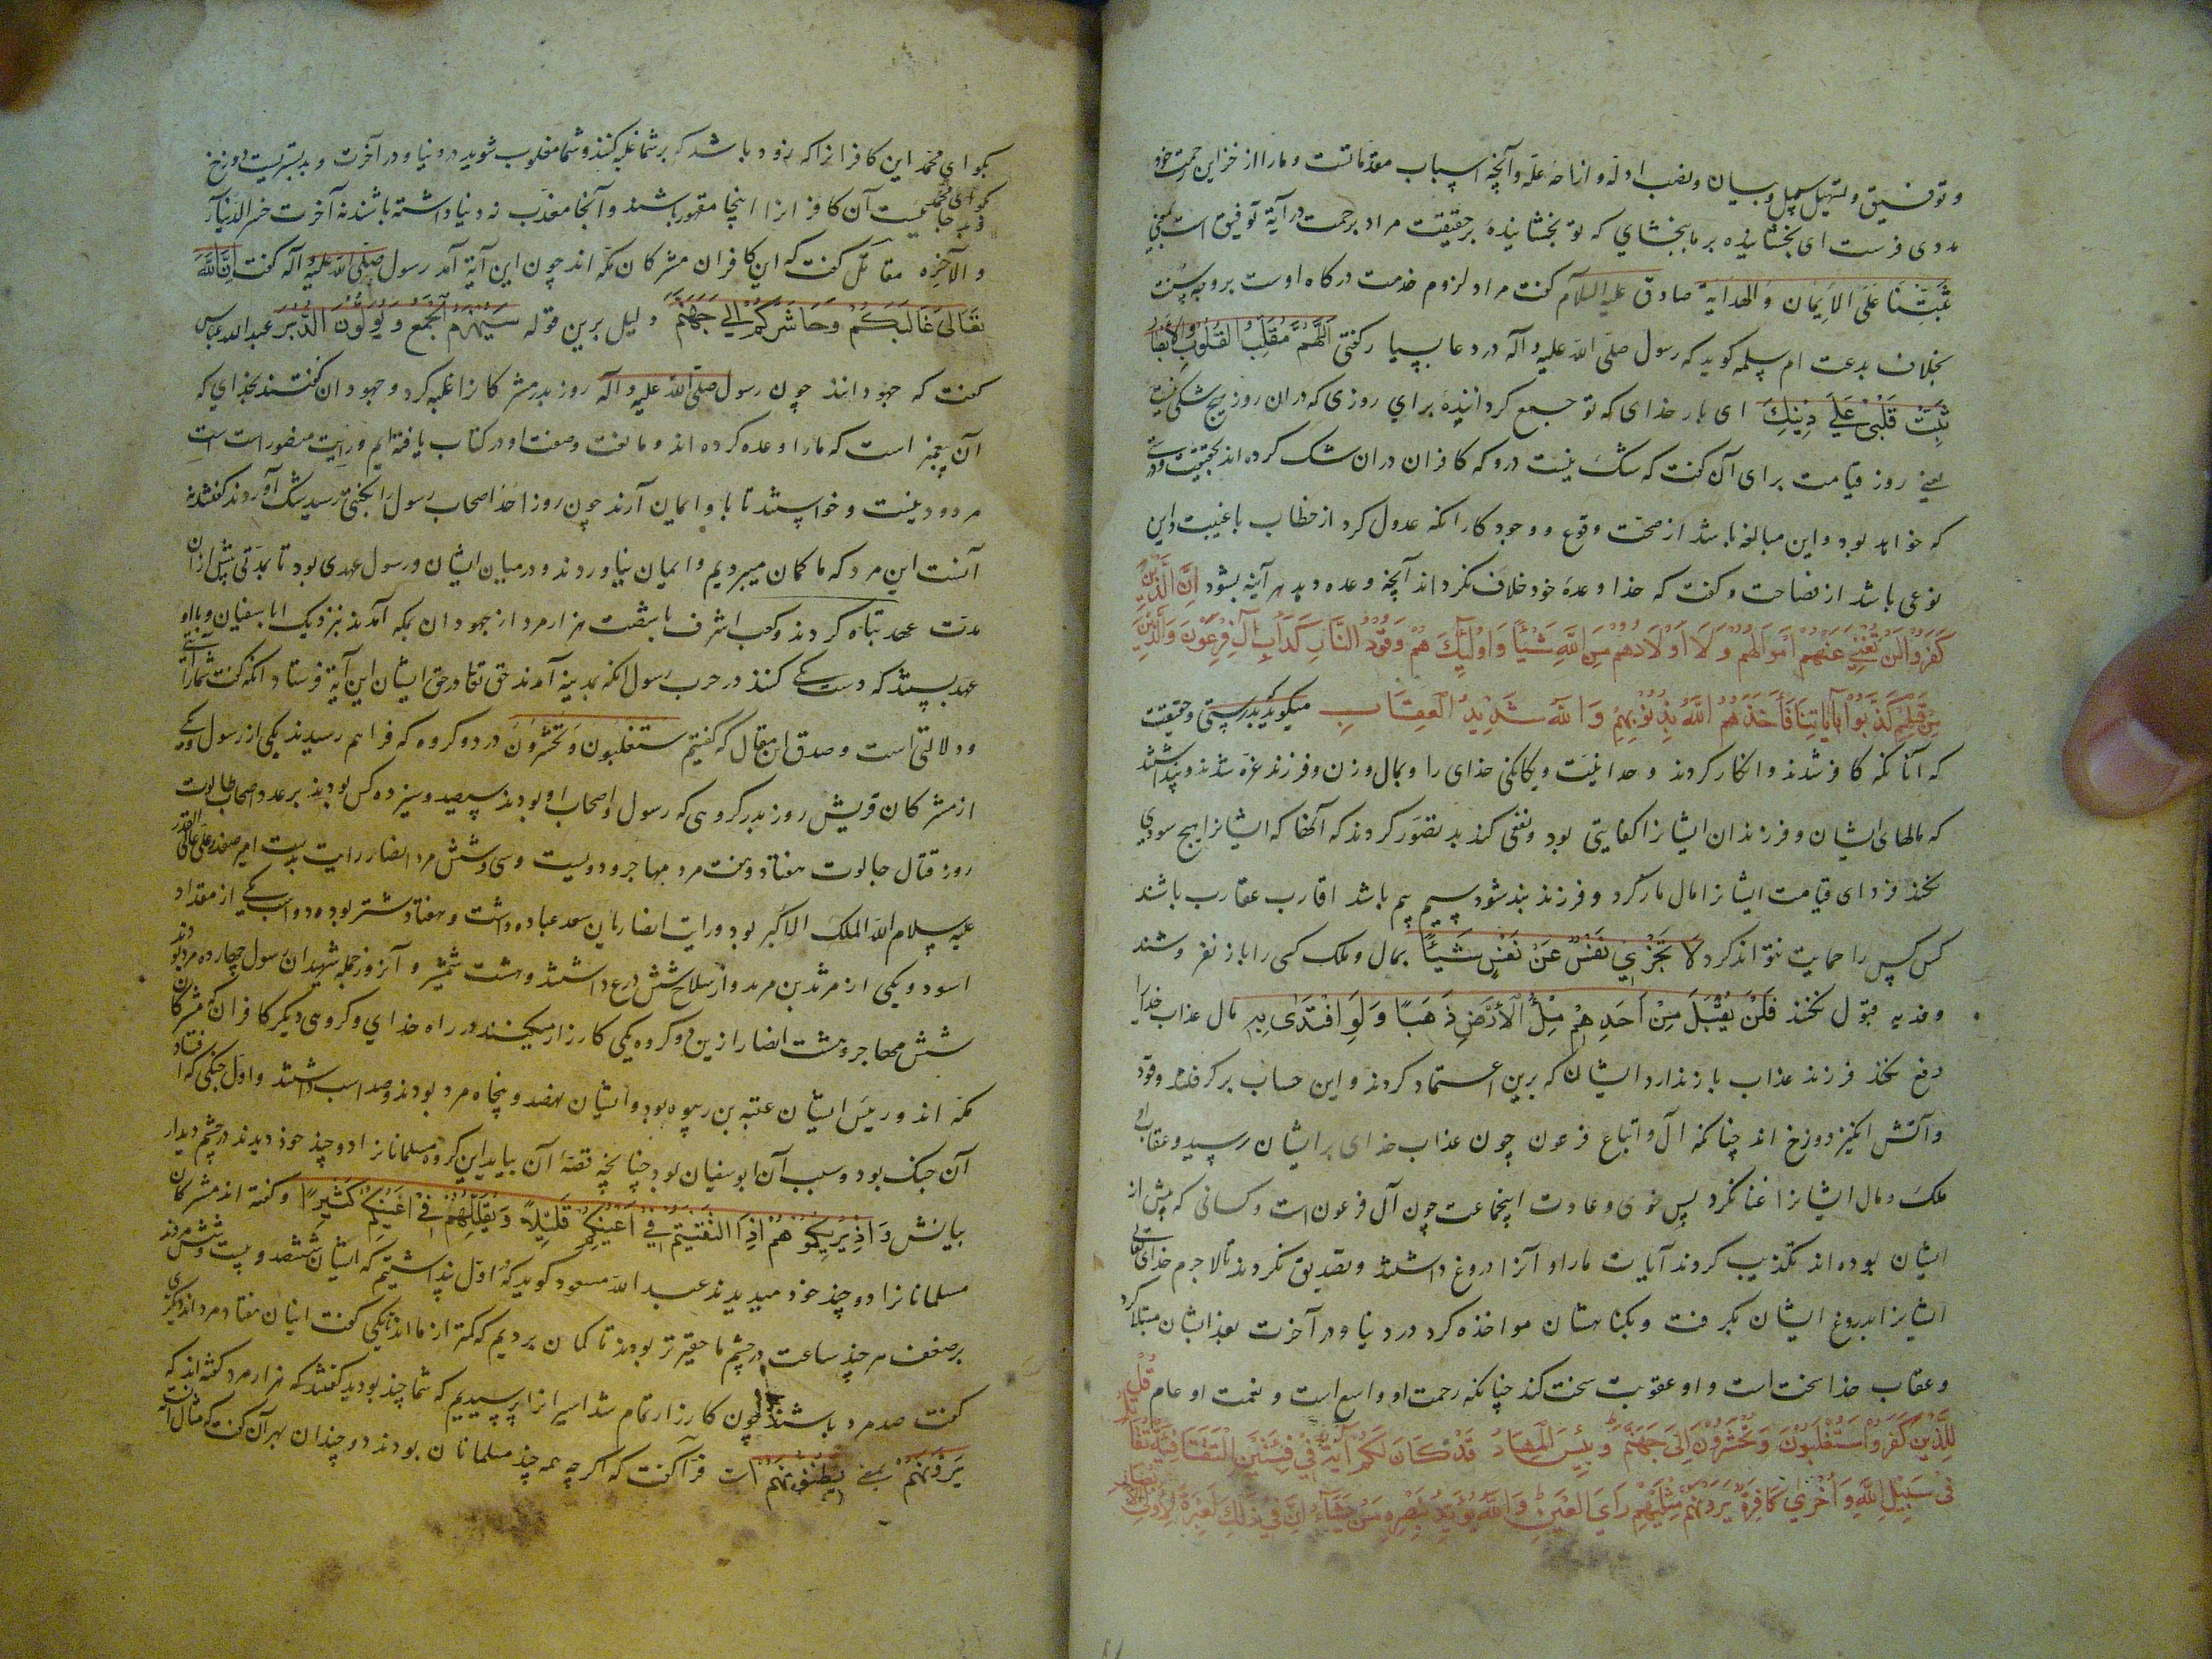 و توفیق و تسهیل سبیل و بیان و نصب ادله و ازاحه عله و آنچه اسباب مقدماتست و ما را از خزاین رحمت خود
مددی فرست ای بخشاینده بر ما ببخشای که تو بخشاینده بر حقیقت مراد برحمت در آیة توفیق است یعنی
ثَبِّتْنَا عَلَى الْاِیمَانِ وَالْهِدَایَة صادق علیه السلام گفت مراد لزوم خدمت درگاه اوست بر وجه سنت
بخلاف بدعت ام سلمه گوید که رسول صلی الله علیه و آله در دعا بسیار گفتی اَللّٰهُمَّ مُقَلِّبَ الْقُلُوبِ وَالْاَبْصَار
ثَبِّتْ قَلْبِی عَلٰی دِینِكَ ای بار خدای که تو جمع گرداننده برای روزی که در آن روز هیچ شکی نیست
یعنی روز قیامت برای آن گفت که شک نیست درو که کافران در آن شک کرده اند بحقیقت
که خواهد بود و این مبالغه باشد از صحت وقوع و وجود کار آنگه عدول کرد از خطاب با غیبت و این
نوعی باشد از فصاحت و گفت که خدا وعدهٔ خود خلاف نگرداند آنچه وعده دهد هر آینه بشود اِنَّ الَّذِینَ
كَفَرُوا لَنْ تُغْنِیَ عَنْهُمْ اَمْوَالُهُمْ وَلَا اَوْلَادُهُمْ مِنَ اللّٰهِ شَیْئًا وَاُولٰئِكَ هُمْ وَقُودُ النَّارِ كَدَاْبِ اٰلِ فِرْعَوْنَ وَالَّذِینَ
مِنْ قَبْلِهِمْ كَذَّبُوا بِاٰیَاتِنَا فَاَخَذَهُمُ اللّٰهُ بِذُنُوبِهِمْ وَاللّٰهُ شَدِیدُ الْعِقَابِ میگوید بدرستی و حقیقت
که آنانکه کافر شدند و انکار کردند وحدانیت و یگانگی خدای را و بمال و زن و فرزند غره شدند و پنداشتند
که مالهای ایشان و فرزندان ایشانرا کفایتی بود و نفعی کند بد تصور کردند که آنها که ایشانرا هیچ سودی
نکند فردای قیامت ایشانرا مال مار گردد و فرزند بند شود سیم سم باشد اقارب عقارب باشند
کس کس را حمایت نتواند کرد لَا تَجْزِی نَفْسٌ عَنْ نَفْسٍ شَیْئًا بمال و ملک کسی را باز نفروشند
و فدیه قبول نکنند فَلَنْ یُقْبَلَ مِنْ اَحَدِهِمْ مِلْءُ الْاَرْضِ ذَهَبًا وَلَوِ افْتَدٰی بِهِ مال عذاب خدا را
دفع نکند فرزند عذاب باز ندارد ایشان که برین اعتماد کردند و این حساب بر گرفتند وقود
و آتش انگیز دوزخ اند چنانکه آل و اتباع فرعون چون عذاب خدای بر ایشان رسید و عقاب او
ملک و مال ایشانرا غنا نکرد پس خوی و عادت اینجماعت چون آل فرعون است و کسانی که پیش از
ایشان بوده اند تکذیب کردند آیات ما را و آنرا دروغ داشتند و تصدیق نکردند تا لاجرم خدای تعالی
ایشانرا بدروغ ایشان بگرفت و بگناهشان مواخذه کرد در دنیا و در آخرت بعذابشان مبتلا کرد
و عقاب خدا سخت است و او عقوبت سخت کند چنانکه رحمت او واسع است و نعمت او عام قُلْ
لِلَّذِینَ كَفَرُوا سَتُغْلَبُونَ وَتُحْشَرُونَ اِلٰی جَهَنَّمَ وَبِئْسَ الْمِهَادُ قَدْ كَانَ لَكُمْ اٰیَةٌ فِی فِئَتَیْنِ الْتَقَتَا فِئَةٌ تُقَاتِلُ
فِی سَبِیلِ اللّٰهِ وَاُخْرٰی كَافِرَةٌ یَرَوْنَهُمْ مِثْلَیْهِمْ رَاْیَ الْعَیْنِ وَاللّٰهُ یُؤَیِّدُ بِنَصْرِهِ مَنْ یَشَاءُ اِنَّ فِی ذٰلِكَ لَعِبْرَةً لِاُولِی الْاَبْصَارِ
بگو ای محمد این کافرانرا که زود باشد که بر شما غلبه کنند و شما مغلوب شوید در دنیا و در آخرت و بد بستریست دوزخ
و بد جائیست آن کافرانرا اینجا مقهور باشند و آنجا معذب نه دنیا داشته باشند نه آخرت خسر الدنیا
و الآخره مقاتل گفت که این کافران مشرکان مکه اند چون این آیة آمد رسول صلی الله علیه و آله گفت اِنَّ اللّٰهَ
تَعَالٰی غَالِبُكُمْ وَحَاشِرُكُمْ اِلٰی جَهَنَّمَ دلیل برین قوله سَیُهْزَمُ الْجَمْعُ وَیُوَلُّونَ الدُّبُرَ عبدالله عباس
گفت که جهودانند چون رسول صلی الله علیه و آله روز بدر مشرکانرا غلبه کرد و جهودان گفتند بخدای که
آن پیغمبر است که ما را وعده کرده اند و ما نعت و صفت او در کتاب یافته ایم و رایت منصور است
مردود نیست و خواستند تا باو ایمان آرند چون روز احد اصحاب رسول را نکبتی رسید شک آوردند گفتند نه
آنست این مرد که ما گمان میبردیم و ایمان نیاوردند و در میان ایشان و رسول عهدی بود تا بمدتی پیش از آن
مدت عهد تباه کردند و کعب اشرف با شصت هزار مرد از جهودان بمکه آمدند بنزدیک ابا سفیان و با او
عهد بستند که دست یکی کنند در حرب رسول آنگه بمدینه آمدند حق تعالی در حق ایشان این آیة فرستاد آنگه گفت شما را آیتی
و دلالتی است و صدق این مقال که گفتیم سَتُغْلَبُونَ وَتُحْشَرُونَ در دو گروه که فراهم رسیدند یکی از رسول و یکی
از مشرکان قریش روز بدر گروهی که رسول و اصحاب او بودند سیصد و سیزده کس بودند بر عدد اصحاب طالوت
روز قتال جالوت هفتاد و هفت مرد مهاجر و دویست و سی و شش مرد انصار رایت بدست امیر صفدر علی عالی القدر
علیه سلام الله الملک الاکبر بود و رایت انصاریان سعد عباده داشت و هفتاد شتر بود و دو اسب یکی از مقداد
اسود و یکی از مرثد بن مرثد و از سلاح شش درع داشتند و هشت شمشیر و آنروز جمله شهیدان رسول چهارده مرد بودند
شش مهاجر و هشت انصار ازین دو گروه یکی کارزار میکنند در راه خدای و گروهی دیگر کافران مشرکان
مکه اند و رئیس ایشان عتبه بن ربیعه بود و ایشان نهصد و پنجاه مرد بودند و صد اسب داشتند و اول جنگی که افتاد
آن جنگ بود و سبب آن ابو سفیان بود چنانچه قصهٔ آن بیاید این گروه مسلمانانرا دو چند خود دیدند در چشم دیدار
بیانش وَاِذْ یُرِیكُمُوهُمْ اِذِ الْتَقَیْتُمْ فِی اَعْیُنِكُمْ قَلِیلًا وَیُقَلِّلُكُمْ فِی اَعْیُنِهِمْ و گفته اند مشرکان
مسلمانانرا دو چند خود میدیدند عبدالله مسعود گوید که اول پنداشتیم که ایشان ششصد و بیست و شش مردند
بر ضعف هر چند ساعت در چشم ما حقیرتر بودند تا گمان بردیم که کمتر از ما اند تا یکی گفت اینان هفتاد مرد اند دیگری
گفت صد مرد باشند چون کارزار تمام شد اسیرانرا پرسیدیم که شما چند بودید گفتند که هزار مرد گفته اند که
یَرَوْنَهُمْ بمعنی یَظُنُّونَهُمْ است فرا گفت که اگر چه سه چند مسلمانان بودند دو چندان بهر آن گفت که مثال